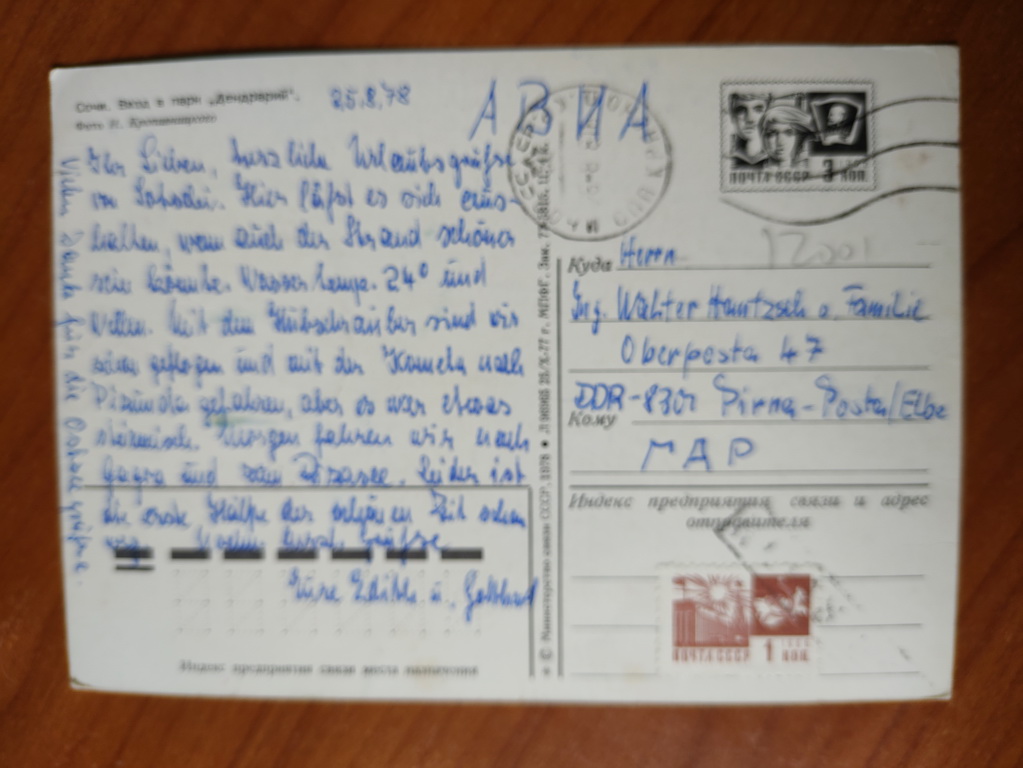 Сочи. Вход в парк „Дендрарий".
Фото
25.8.78
АВИА
Ihr Lieben, herzliche Urlaubsgrüße
von Hier läßt es sich aus-
halten, wenn auch der Strand schöner
sein könnte. Wassertemp. 24° und
Wellen. Mit dem Hubschrauber sind wir
schon geflogen und mit der Kometa nach
Pizunda gefahren, aber es war etwas
stürmisch. Morgen fahren wir nach
Gagra und zum Rizasee. Leider ist
die erste Hälfte der schönen Zeit schon
weg. Nochm. herzl. Grüße
Eure Edith u. Gotthard
Vielen Dank für die Grüße.
Индекс предприятия связи места назначения
© Министерство связи СССР, 1978
ПОЧТА СССР 3 КОП.
12001
Куда Herrn
Ing. Walter Hantzsch u. Familie
Oberposta 47
DDR-8301 Pirna-Posta/Elbe
Кому
ГДР
Индекс предприятия связи и адрес
отправителя
ПОЧТА СССР 1 КОП.